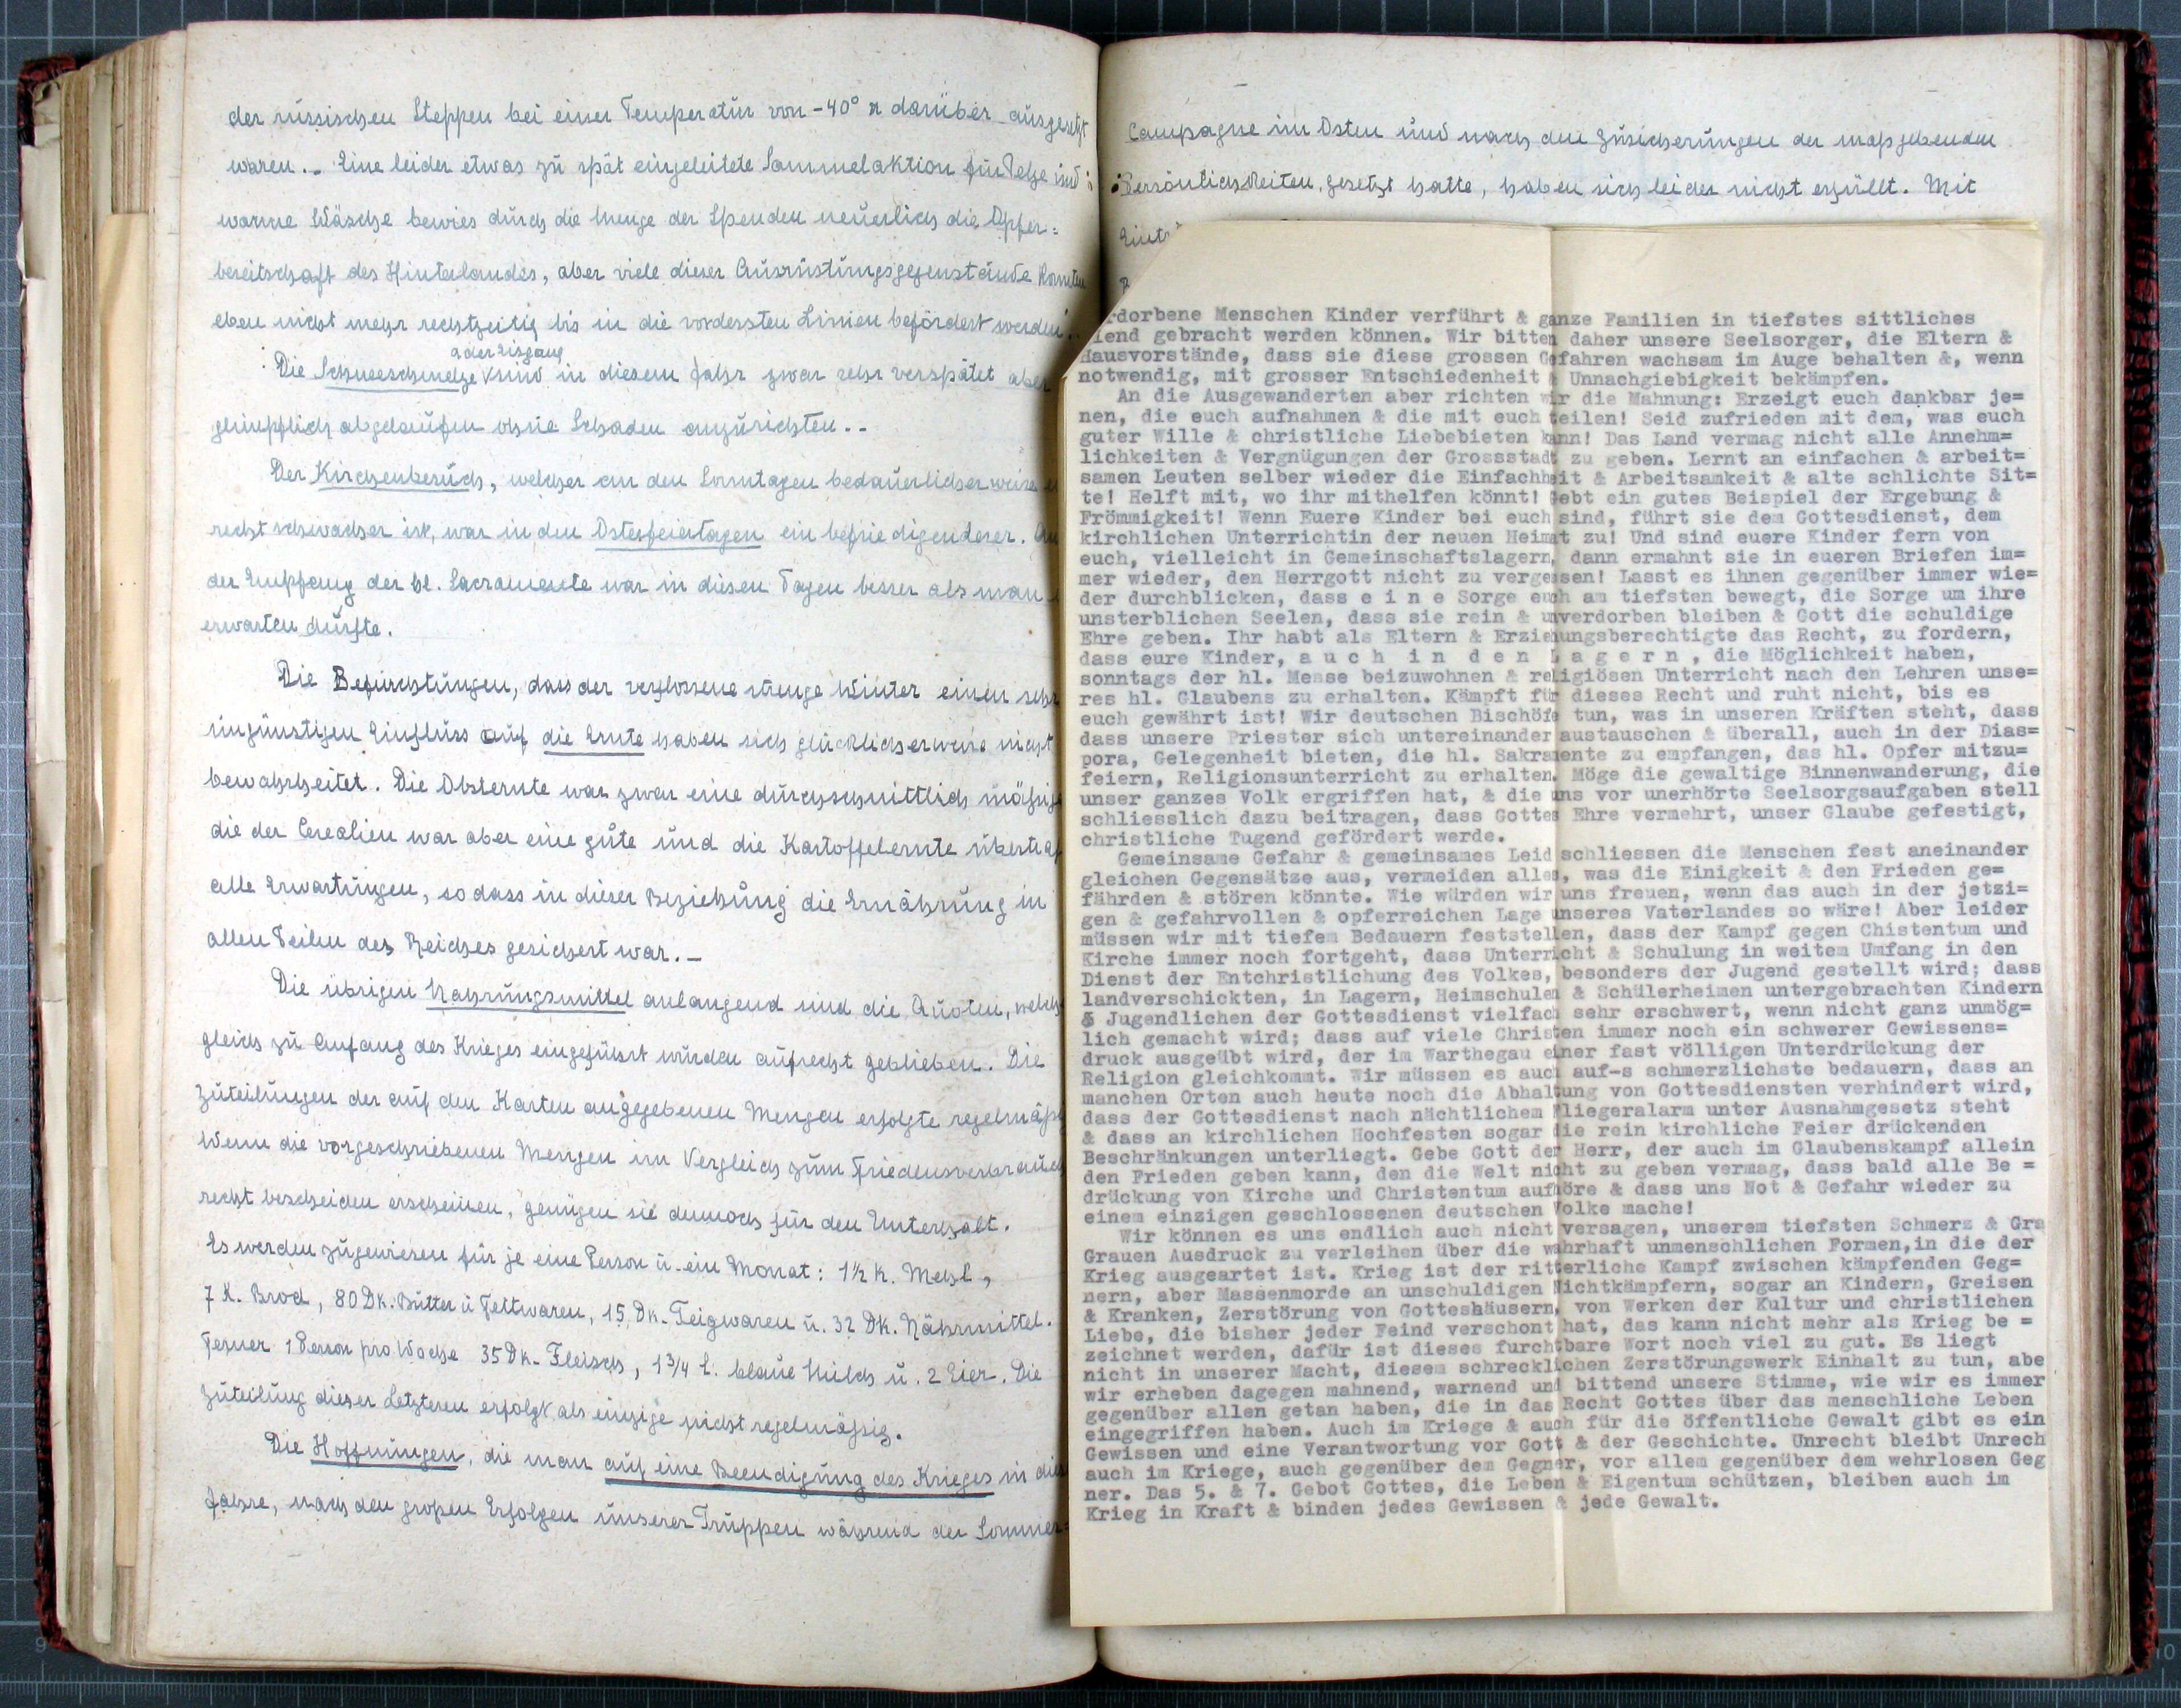 der russischen Steppen bei einer Temperatur von -40° u darüber ausgesetzt
waren.- Eine leider etwas zu spät eingeleitete Sammelaktion für Pelze und
warme Wäsche bewies durch die Menge der Spenden neuerlich die Opfer=
bereitschaft des Hinterlandes, aber viele dieser Ausrüstungsgegenstände konnten
eben nicht mehr rechtzeitig bis in die vordersten Linien befördert werden..
u der Eisgang
Die Schneeschmelze sind in diesem Jahr zwar sehr verspätet aber
glimpflich abgelaufen ohne Schaden anzurichten..
Der Kirchenbesuch, welcher an den Sonntagen bedauerlicherweise
recht schwacher ist, war in den Osterfeiertagen ein befriedigenderer.
der Empfang der hl. Sacramente war in diesen Tagen besser als man
erwarten dürfte.
Die Befürchtungen, dass der verflossene strenge Winter einen sehr
ungünstigen Einfluss auf die Ernte haben sich glücklicherweise nicht
bewahrheitet. Die Obsternte war zwar eine durchschnittlich mäßige
die der Cerealien war aber eine gute und die Kartoffelernte übertraf
alle Erwartungen, so dass in dieser Beziehung die Ernährung in
allen Teilen des Reiches gesichert war.-
Die übrigen Nahrungsmittel anlangend sind die Quoten, welche
gleich zu Anfang des Krieges eingeführt wurden aufrecht geblieben. Die
Zuteilungen der auf den Karten angegebenen Mengen erfolgte regelmäßig
Wenn die vorgeschriebenen Mengen im Vergleich zum Friedensverbrauch
recht bescheiden erscheinen, genügen sie dennoch für den Unterhalt.
Es werden zugewiesen für je eine Person u. ein Monat: 1½ K. Mehl,
7 K. Brod, 80 Dk. Butter u Fettwaren, 15 Dk. Teigwaren u. 32 Dk. Nährmittel.
Ferner 1 Person pro Woche 35 Dk. Fleisch, 1 3/4 L. blaue Milch u. 2 Eier. Die
Zuteilung dieser Letzteren erfolgt als einzige nicht regelmäßig.
Die Hoffnungen, die man auf eine Beendigung des Krieges in
Jahre, nach den großen Erfolgen unserer Truppen während der Sommer=
Campagne im Osten und nach den Zusicherungen der maßgebenden
Persönlichkeiten, gesetzt hatte, haben sich leider nicht erfüllt. Mit
rdorbene Menschen Kinder verführt & ganze Familien in tiefstes sittliches
lend gebracht werden können. Wir bitten daher unsere Seelsorger, die Eltern &
Hausvorstände, dass sie diese grossen Gefahren wachsam im Auge behalten &, wenn
notwendig, mit grosser Entschiedenheit & Unnachgiebigkeit bekämpfen.
An die Ausgewanderten aber richten wir die Mahnung: Erzeigt euch dankbar je=
nen, die euch aufnahmen & die mit euch teilen! Seid zufrieden mit dem, was euch
guter Wille & christliche Liebebieten kann! Das Land vermag nicht alle Annehm=
lichkeiten & Vergnügungen der Grossstadt zu geben. Lernt an einfachen & arbeit=
samen Leuten selber wieder die Einfachheit & Arbeitsamkeit & alte schlichte Sit=
te! Helft mit, wo ihr mithelfen könnt! Gebt ein gutes Beispiel der Ergebung &
Frömmigkeit! Wenn Euere Kinder bei euch sind, führt sie dem Gottesdienst, dem
kirchlichen Unterrichtin der neuen Heimat zu! Und sind euere Kinder fern von
euch, vielleicht in Gemeinschaftslagern, dann ermahnt sie in eueren Briefen im=
mer wieder, den Herrgott nicht zu vergessen! Lasst es ihnen gegenüber immer wie=
der durchblicken, dass e i n e Sorge euch am tiefsten bewegt, die Sorge um ihre
unsterblichen Seelen, dass sie rein & unverdorben bleiben & Gott die schuldige
Ehre geben. Ihr habt als Eltern & Erziehungsberechtigte das Recht, zu fordern,
dass eure Kinder, a u c h i n d e n L a g e r n , die Möglichkeit haben,
sonntags der hl. Messe beizuwohnen & religiösen Unterricht nach den Lehren unse=
res hl. Glaubens zu erhalten. Kämpft für dieses Recht und ruht nicht, bis es
euch gewährt ist! Wir deutschen Bischöfe tun, was in unseren Kräften steht, dass
dass unsere Priester sich untereinander austauschen & überall, auch in der Dias=
pora, Gelegenheit bieten, die hl. Sakramente zu empfangen, das hl. Opfer mitzu=
feiern, Religionsunterricht zu erhalten. Möge die gewaltige Binnenwanderung, die
unser ganzes Volk ergriffen hat, & die uns vor unerhörte Seelsorgsaufgaben stell
schliesslich dazu beitragen, dass Gottes Ehre vermehrt, unser Glaube gefestigt,
christliche Tugend gefördert werde.
Gemeinsame Gefahr & gemeinsames Leid schliessen die Menschen fest aneinander
gleichen Gegensätze aus, vermeiden alles, was die Einigkeit & den Frieden ge=
fährden & stören könnte. Wie würden wir uns freuen, wenn das auch in der jetzi=
gen & gefahrvollen & opferreichen Lage unseres Vaterlandes so wäre! Aber leider
müssen wir mit tiefem Bedauern feststellen, dass der Kampf gegen Chistentum und
Kirche immer noch fortgeht, dass Unterricht & Schulung in weitem Umfang in den
Dienst der Entchristlichung des Volkes, besonders der Jugend gestellt wird; dass
landverschickten, in Lagern, Heimschulen & Schülerheimen untergebrachten Kindern
& Jugendlichen der Gottesdienst vielfach sehr erschwert, wenn nicht ganz unmög=
lich gemacht wird; dass auf viele Christen immer noch ein schwerer Gewissens=
druck ausgeübt wird, der im Warthegau einer fast völligen Unterdrückung der
Religion gleichkommt. Wir müssen es auch auf-s schmerzlichste bedauern, dass an
manchen Orten auch heute noch die Abhaltung von Gottesdiensten verhindert wird,
dass der Gottesdienst nach nächtlichem Fliegeralarm unter Ausnahmgesetz steht
& dass an kirchlichen Hochfesten sogar die rein kirchliche Feier drückenden
Beschränkungen unterliegt. Gebe Gott der Herr, der auch im Glaubenskampf allein
den Frieden geben kann, den die Welt nicht zu geben vermag, dass bald alle Be =
drückung von Kirche und Christentum aufhöre & dass uns Not & Gefahr wieder zu
einem einzigen geschlossenen deutschen Volke mache!
Wir können es uns endlich auch nicht versagen, unserem tiefsten Schmerz & Gra
Grauen Ausdruck zu verleihen über die wahrhaft unmenschlichen Formen,in die der
Krieg ausgeartet ist. Krieg ist der ritterliche Kampf zwischen kämpfenden Geg=
nern, aber Massenmorde an unschuldigen Nichtkämpfern, sogar an Kindern, Greisen
& Kranken, Zerstörung von Gotteshäusern, von Werken der Kultur und christlichen
Liebe, die bisher jeder Feind verschont hat, das kann nicht mehr als Krieg be =
zeichnet werden, dafür ist dieses furchtbare Wort noch viel zu gut. Es liegt
nicht in unserer Macht, diesem schrecklichen Zerstörungswerk Einhalt zu tun, abe
wir erheben dagegen mahnend, warnend und bittend unsere Stimme, wie wir es immer
gegenüber allen getan haben, die in das Recht Gottes über das menschliche Leben
eingegriffen haben. Auch im Kriege & auch für die öffentliche Gewalt gibt es ein
Gewissen und eine Verantwortung vor Gott & der Geschichte. Unrecht bleibt Unrech
auch im Kriege, auch gegenüber dem Gegner, vor allem gegenüber dem wehrlosen Geg
ner. Das 5. & 7. Gebot Gottes, die Leben & Eigentum schützen, bleiben auch im
Krieg in Kraft & binden jedes Gewissen & jede Gewalt.